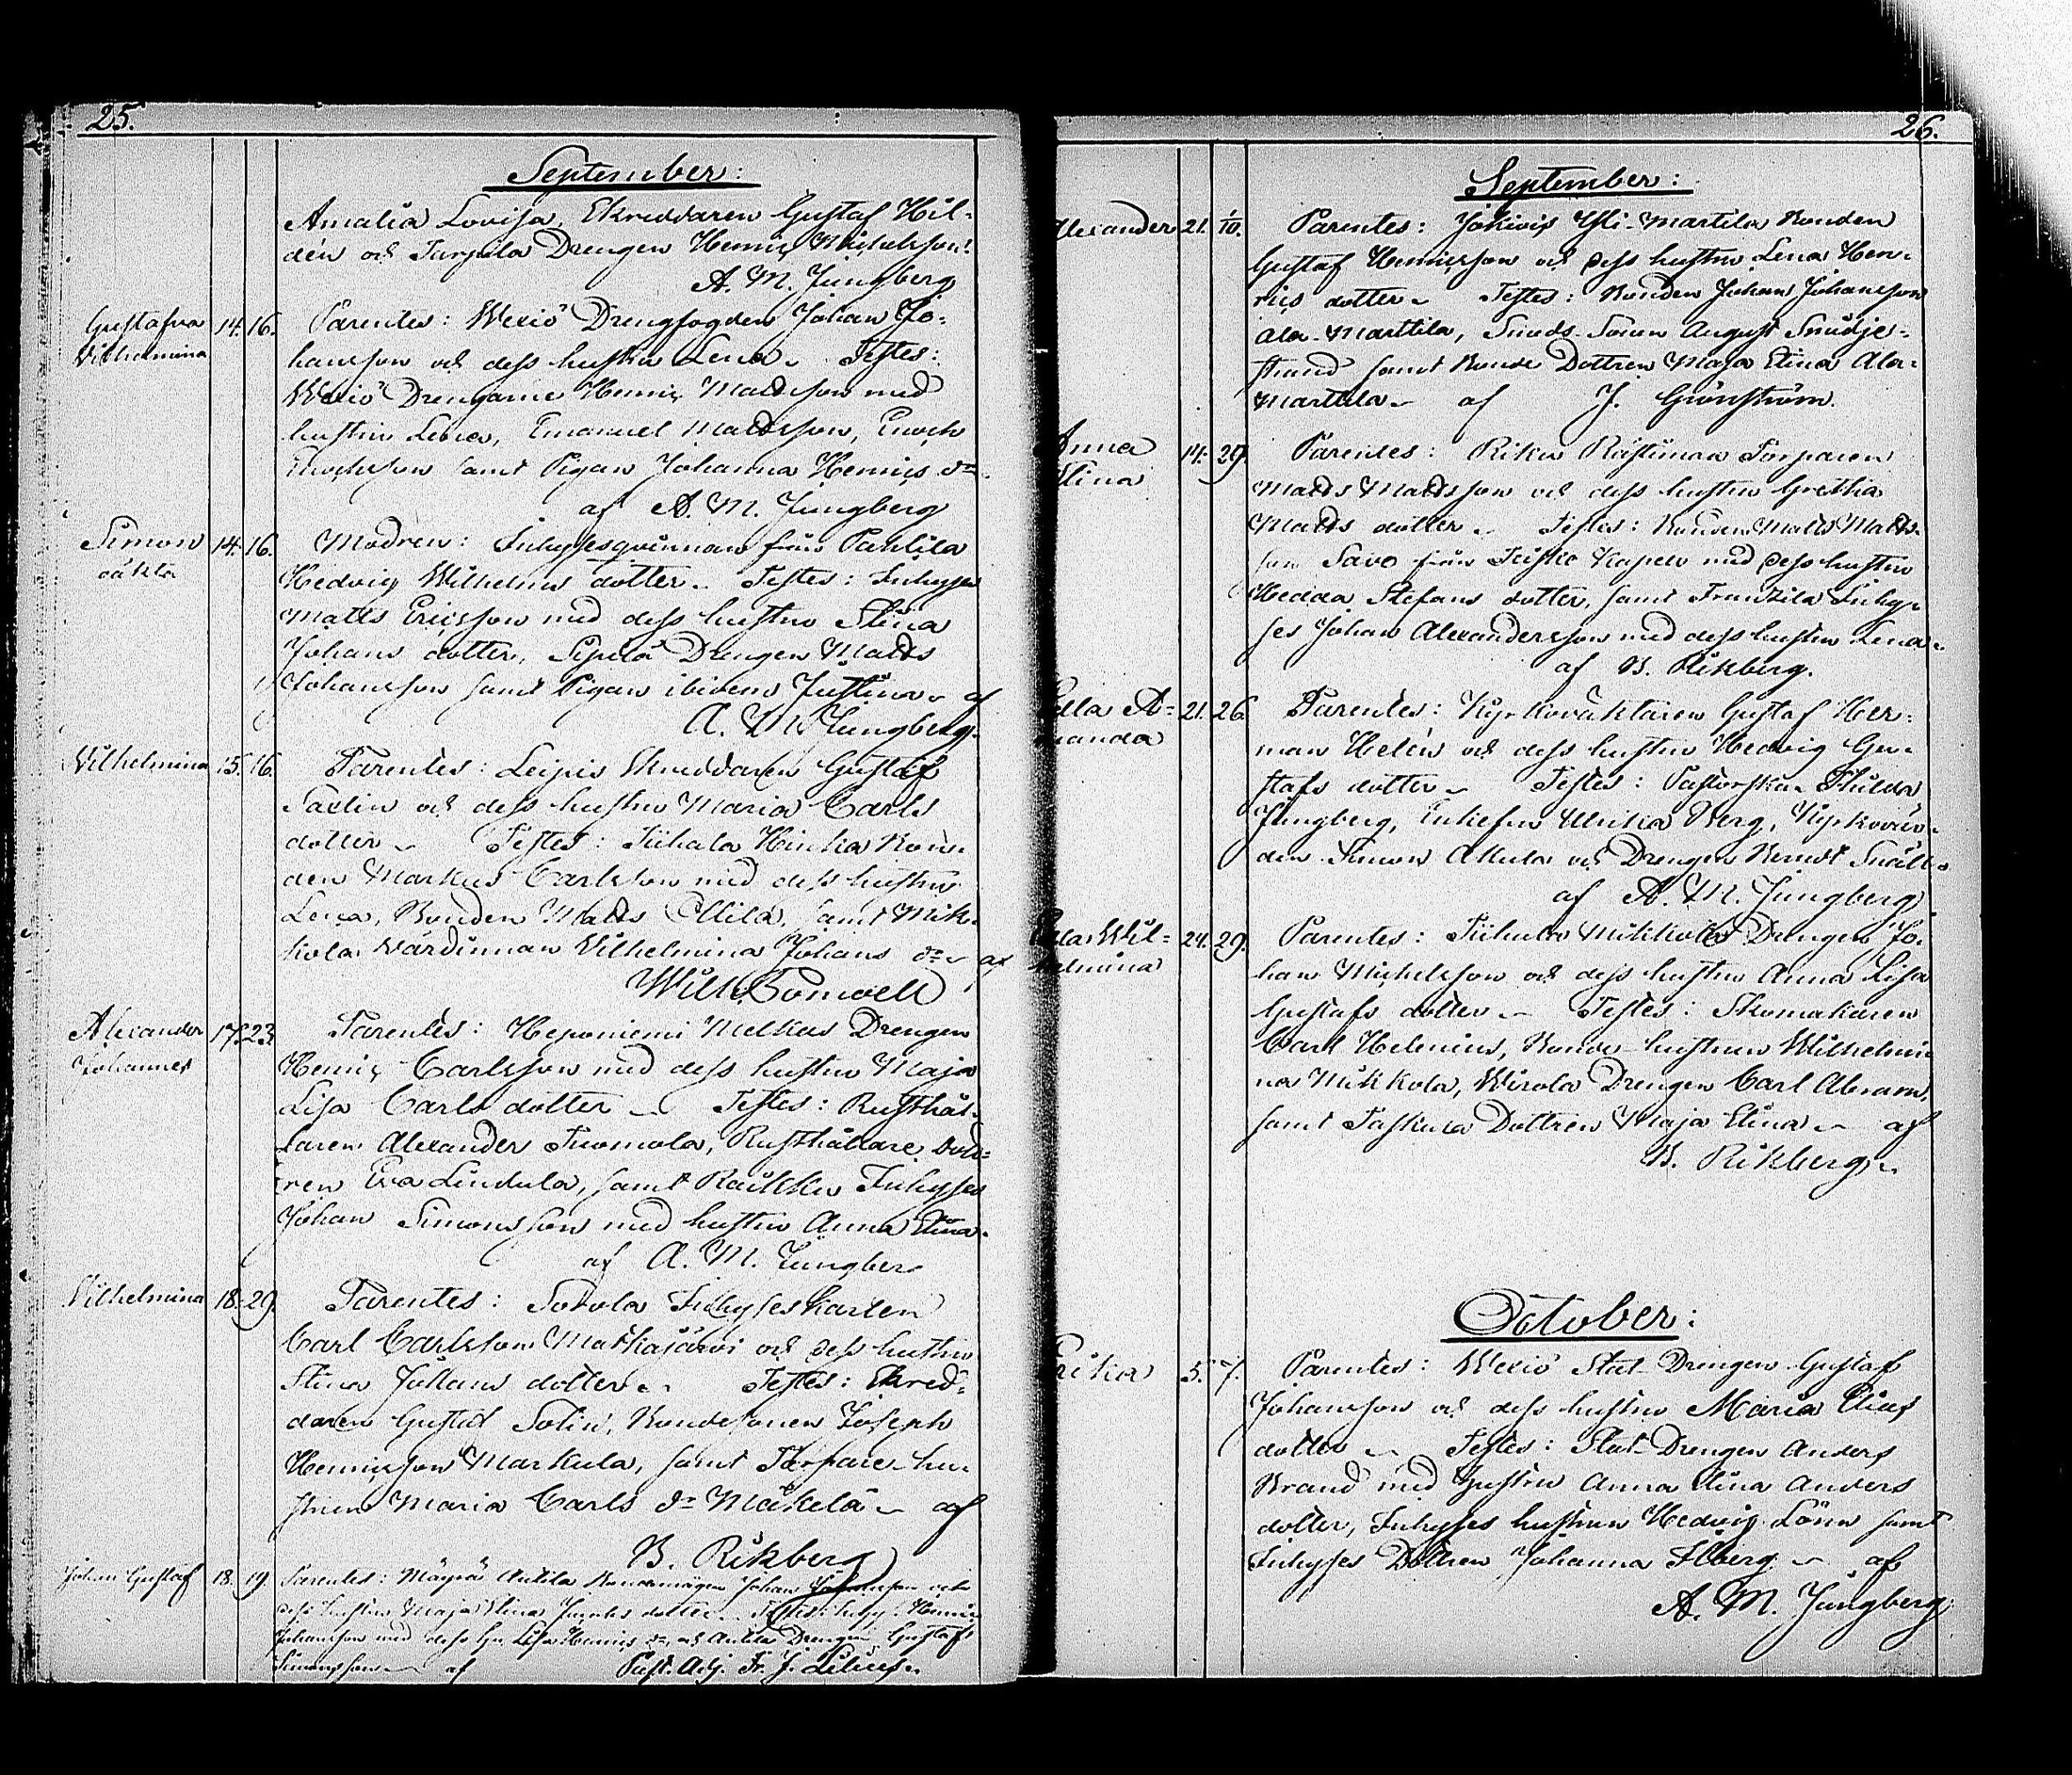 25.
September:
Amalia Lovisa, Skreddaren Gustaf Hil-
dén och Tarpila Drengen Henric Michelsson.
A. M. Jungberg
Gustafva Vilhelmina 14. 16. Parentes: Wexiö Drengfogden Johan Jo-
hansson och dess hustru Lena. Testes:
Wexiö Drengarne Henric Mattsson med
hustru Lena, Emanuel Mattsson, Enoch
Enochsson samt Pigan Johanna Henrics dr.
af A. M. Jungberg
Simon oäkta 14. 16. Modren: Inhysesqvinnan från Panlila
Hedvig Wilhelms dotter. Testes: Inhyses
Matts Ericsson med dess hustru Stina
Johans dotter, Sipilä Drengen Matts
Johansson samt Pigan ibidem Justina af
A. M. Jungberg.
Vilhelmina 15. 16. Parentes: Leipis Skreddaren Gustaf
Saxlin och dess hustru Maria Carls
dotter. Testes: Tuhala Heikka Bon-
den Markus Carlsson med dess hustru
Lena, Bonden Matts Ollila, samt Mik-
kola Värdinnan Vilhelmina Johans dr. af
Wilh.
Alexander Johannes 17. 23. Parentes: Heponiemi Melkas Drengen
Henric Carlsson med dess hustru Maja
Lisa Carls dotter. Testes: Rusthål-
laren Alexander Tuomola, Rusthållare Dott-
ren Eva Lindula, samt Raukku Inhyses
Johan Simonsson med hustru Anna Stina.
af A. M. Jungber
Vilhelmina 18. 29. Parentes: Sorola Inhyseskarlen
Carl Carlsson Matkajärvi och dess hustru
Stina Julians dotter. Testes: Skred-
daren Gustaf Solin, Bondesonen Joseph
Henricsson Markula, samt Torpare hu-
strun Maria Carls dr Mäkelä af
B. Rikberg
Johan Gustaf 18. 19. Parentes: Mäyrä Anttila Bondemågen Johan Johansson och
dess hustru Maja Stina Jacobs dotter. Testes: Inhys: Henric
Johansson med dess hu. Lisa Henrics dr, och Anttila Drengen Gustaf
Simonsson af Past. Adj. Fr. J. Lilius.
26.
September:
Alexander 21. 1/10. Parentes: Jokivis Yli-Martila Bonden
Gustaf Henricsson och dess hustru Lena Hen-
rics dotter. Testes: Bonden Johan Johansson
Ala-Marttila, Smeds Sonen August Smidje-
strand samt Bonde Dottren Maja Stina Ala-
Marttila. af J. Grönström.
Anna Stina 14. 29. Parentes: Riku Rästiman Torparen
Matts Mattsson och dess hustru Gretha
Matts dotter. Testes: Bonden Matts Matts-
son Savo från Kapell med dess hustru
Hedda Stefans dotter, samt Frantzila Inhy-
ses Johan Alexandersson med dess hustru Lena.
af B. Rikberg.
Edla A-manda 21. 26. Parentes: Kyrkoväktaren Gustaf Her-
man Helén och dess hustru Hedvig Gu-
stafs dotter. Testes: Pastorskan Thilda
Jungberg, Enkefru Ulrika Berg, Kyrkovär-
den Simon Akula och Drengen Berndt Snäll.
af A. M. Jungberg
Edla Wil-helmina 24. 29. Parentes: Tuhala Mikkola Drengen Jo-
han Michelsson och dess hustru Anna Lisa
Gustafs dotter. Testes: Skomakaren
Carl Helenius, Bonde-hustrun Wilhelmi-
na Mikkola, Wirola Drengen Carl Abram,
samt Dottren Maja Stina. af
B. Rikberg.
October:
Erika 5. 7. Parentes: Wexiö Stat-Drengen Gustaf
Johansson och dess hustru Maria Elias
dotter. Testes: Stat-Drengen Anders
Brand med hustru Anna Stina Anders
dotter, Inhyses hustrun Hedvig Lönn samt
Inhyses Dottren Johanna Åberg. af
A. M. Jungberg